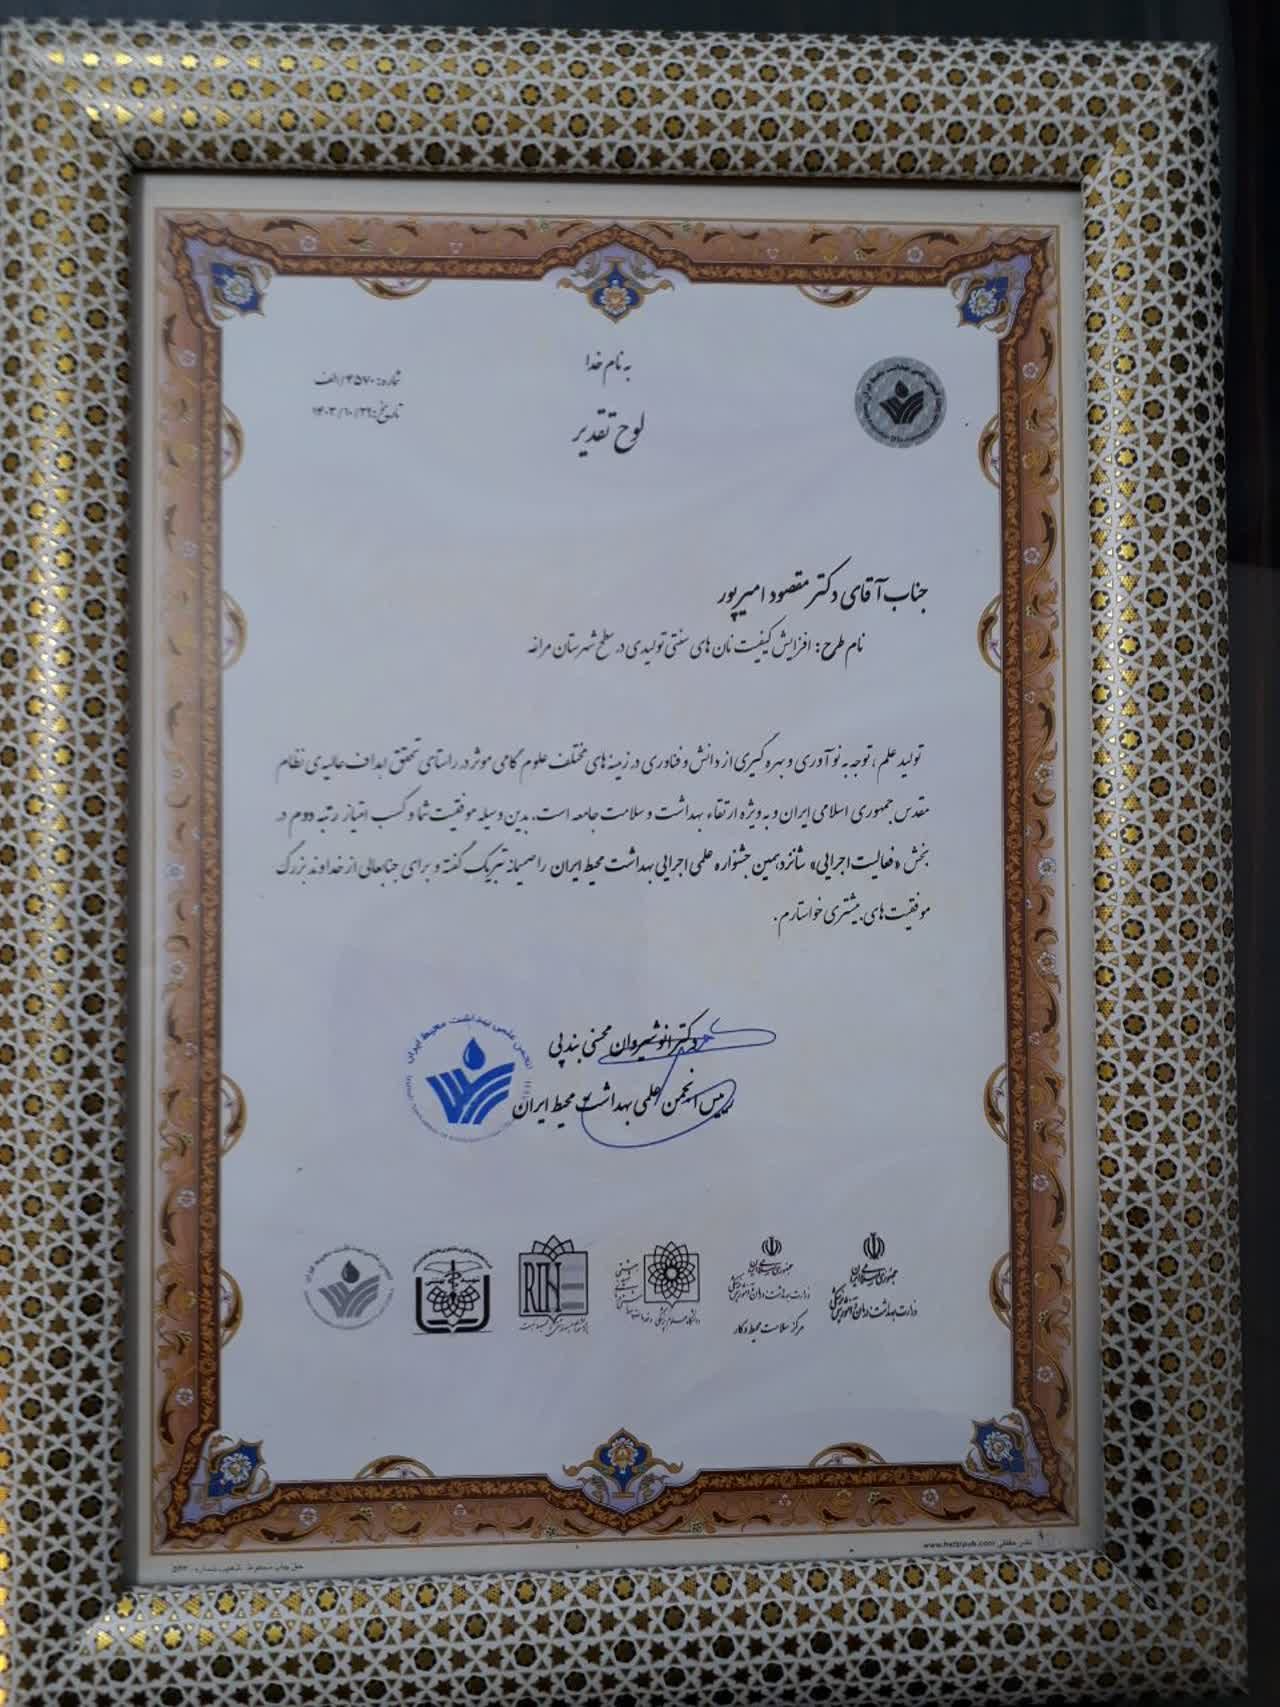 به نام خدا
لوح تقدیر
شماره: ۴۵۷۰/الف
تاریخ: ۱۴۰۳/۱۰/۲۶
جناب آقای دکتر مقصود امیرپور
نام طرح: افزایش کیفیت نان های سنتی تولیدی در سطح شهرستان مراغه
تولید علم، توجه به نوآوری و بهره گیری از دانش و فناوری در زمینه های مختلف علوم گامی موثر در راستای تحقق اهداف عالیه ی نظام
مقدس جمهوری اسلامی ایران و به ویژه ارتقاء بهداشت و سلامت جامعه است. بدین وسیله موفقیت شما و کسب امتیاز رتبه دوم در
بخش «فعالیت اجرایی» شانزدهمین جشنواره علمی اجرایی بهداشت محیط ایران را صمیمانه تبریک گفته و برای جنابعالی از خداوند بزرگ
موفقیت های بیشتری خواستارم.
دکتر انوشیروان محسنی بندپی
رییس انجمن علمی بهداشت محیط ایران
انجمن علمی بهداشت محیط ایران
جمهوری اسلامی ایران
وزارت بهداشت، درمان و آموزش پزشکی
جمهوری اسلامی ایران
وزارت بهداشت، درمان و آموزش پزشکی
مرکز سلامت محیط و کار
RIH
نشر حافظی www.hefzipub.com